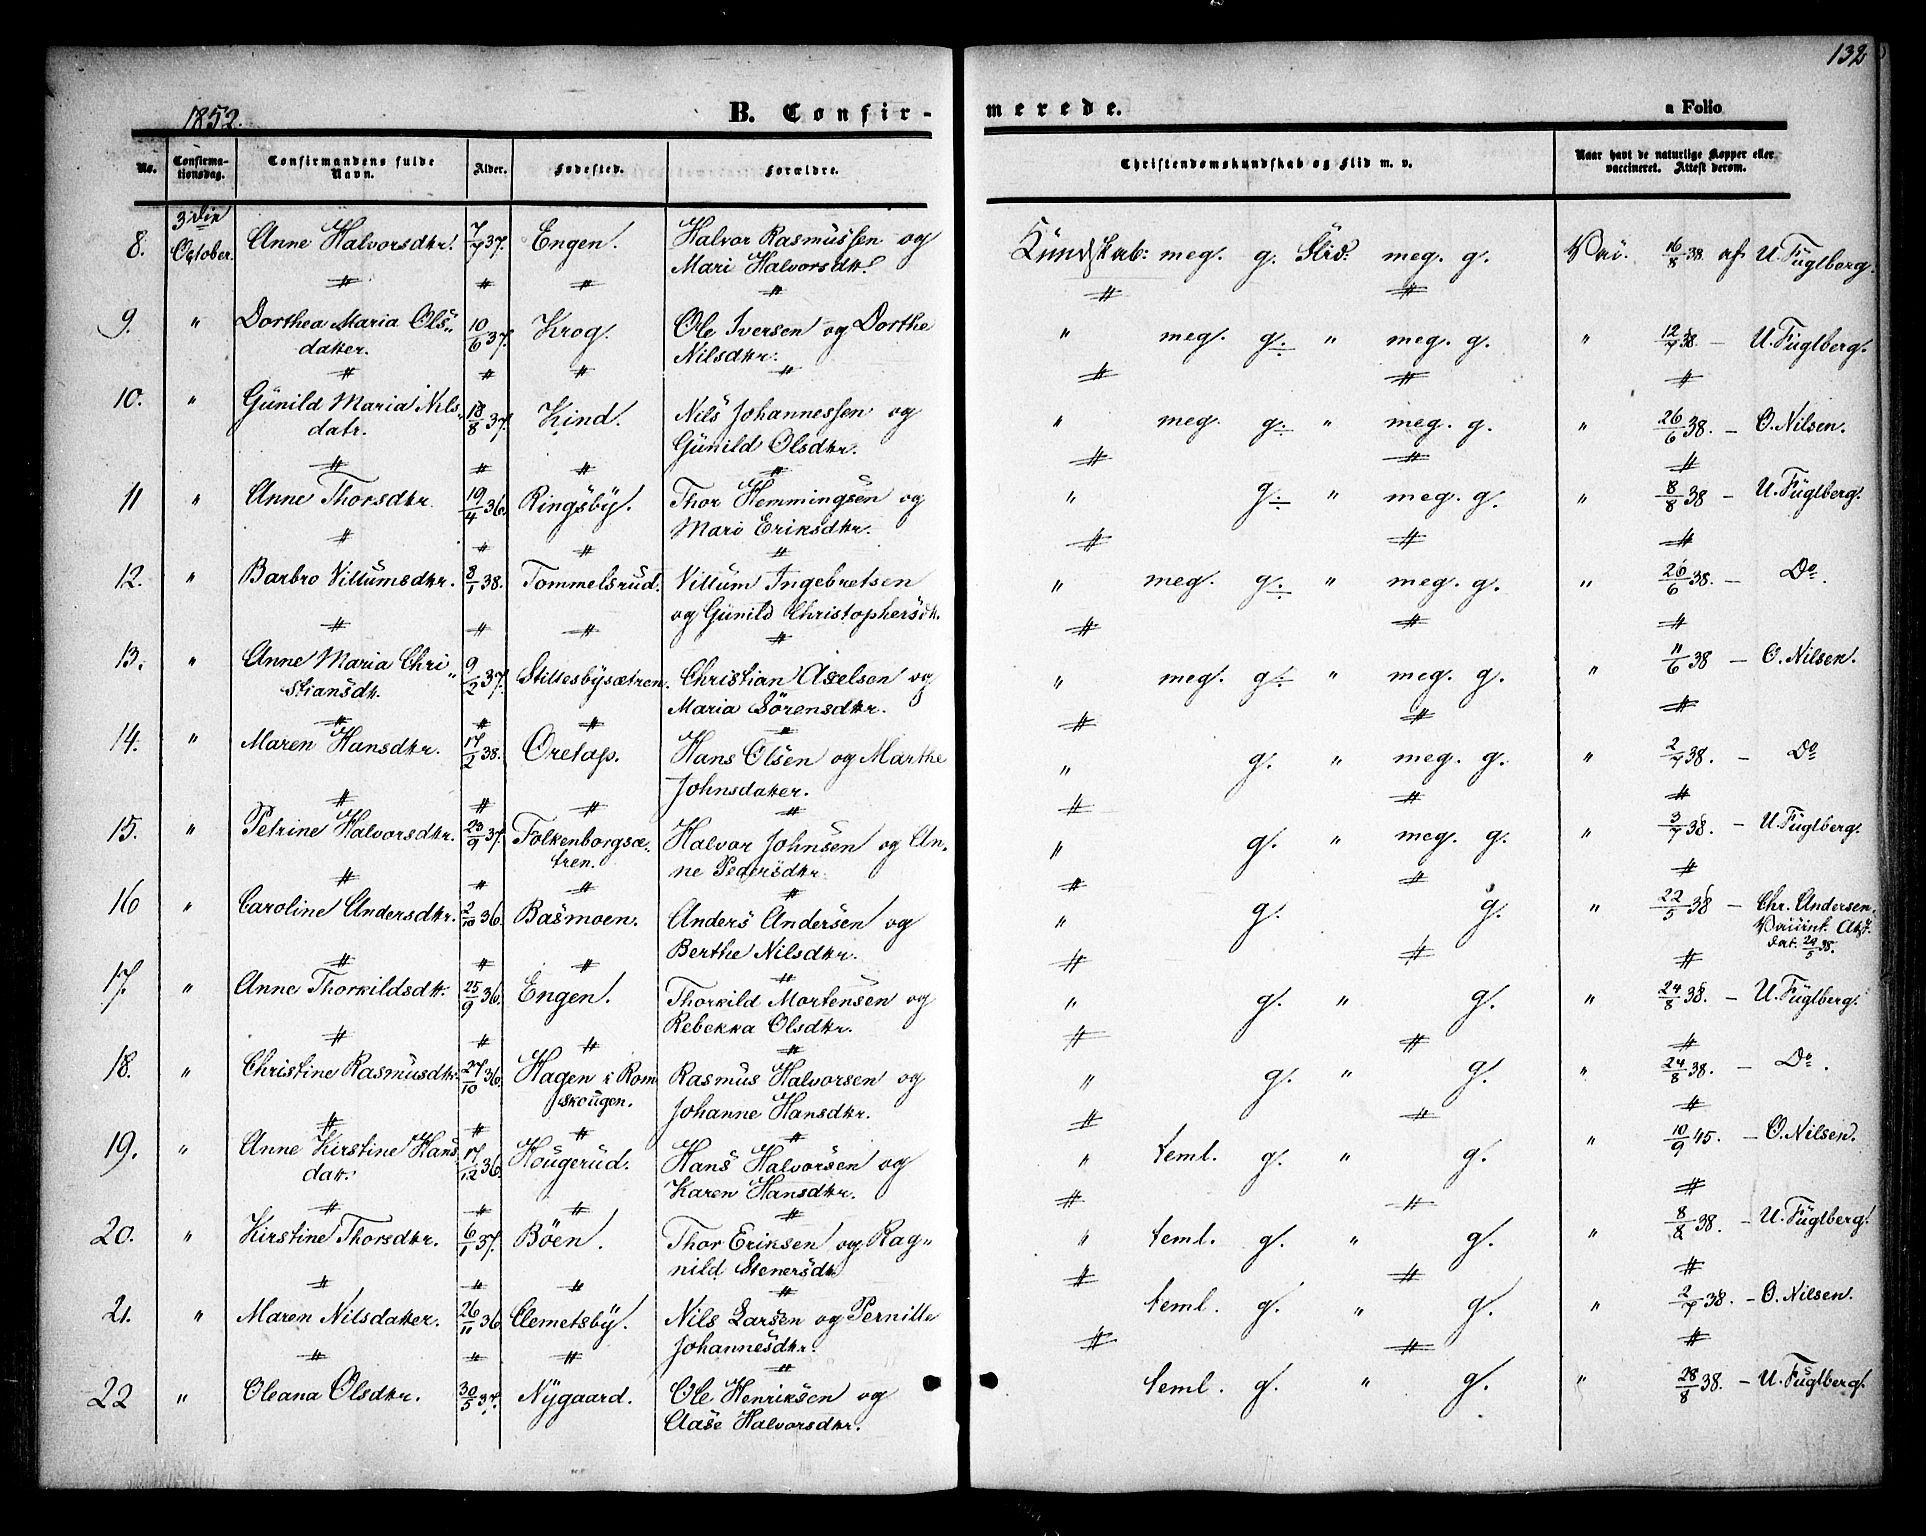 132
1852.
B. Confir-
merede.
a Folio
No.
Confirma-
tionsdag.
Confirmandens fulde
Navn.
Alder.
Fødested.
Forældre.
Christendomskundskab og Flid m. v.
Naar havt de naturlige Kopper eller
vaccineret. Attest derom.
3die
8. October. Anne Halvorsdtr. 7/7 37. Engen. Halvor Rasmussen og
Mari Halvorsdtr.
Kundskab: meg. g. Flid: meg. g. 16/8 38 af U. Fuglberg.
9. " Dorthea Maria Ols-
datter. 10/6 37. Krog. Ole Iversen og Dorthe
Nilsdtr.
" meg. g. " meg. g. " 12/7 38 – U. Fuglberg.
10. " Gunild Maria Nils-
datr. 18/8 37. Kind. Nils Johannessen og
Gunild Olsdtr.
" meg. g. " meg. g. " 26/6 38. – O. Nilsen.
11 " Anne Thorsdtr 19/4 36. Ringsby. Thor Hemmingsen og
Mari Eriksdtr.
" g. " meg. g. " 8/8 38 – U. Fuglberg.
12. " Barbro Villumsdtr. 8/1 38. Tommelsrud. Villum Ingebretsen
og Gunild Christophersdtr.
" meg. g. " meg. g. " 26/6 38. – Do.
13. " Anne Maria Chri-
stiansdtr. 9/2 37. Stiltesbysætren. Christian Axelsen og
Maria Sörensdtr.
" meg. g. " meg. g. " 11/6 38 – O. Nilsen.
14. " Maren Hansdtr. 17/2 38. Hans Olsen og Marthe
Johnsdatter.
" g. " meg. g. " 2/7 38. – Do
15. " Petrine Halvorsdtr. 23/9 37. Folkenborgsæ-
tren. Halvor Johnsen og An-
ne Pedersdtr.
" g. " meg. g. " 3/7 38. – U. Fuglberg.
16 " Caroline Andersdtr. 2/10 36. Basmoen. Anders Andersen og
Berthe Nilsdtr.
" g. g. " 22/5 38 – Chr. Andersen.
17. " Anne Thorkildsdtr. 25/9 36. Engen. Thorkild Mortensen og
Rebekka Olsdtr.
" g. " g. " 24/8 38. – U. Fuglberg.
18. " Christine Rasmusdtr. 27/10 36. Hagen i Rom
skougen. Rasmus Halvorsen og
Johanne Hansdtr.
" g. " g. " 24/8 38. – Do.
19. " Anne Kirstine Hans
datr. 17/12 36. Hougerud. Hans Halvorsen og
Karen Hansdtr.
" teml. g. " g. " 10/9 45. – O. Nilsen.
20. " Kirstine Thorsdtr. 6/1 37. Böen. Thor Eriksen og Rag-
nild Stenersdtr
" teml. g. " g. " 8/8 38. – U. Fuglberg.
21. " Maren Nilsdatter. 26/11 36 Clemetsby. Nils Larsen og Pernille
Johannesdtr.
teml. g. " g. " 2/7 38. – O. Nilsen.
22 " Oleana Olsdtr. 30/5 37. Nygaard. Ole Henriksen og
Aase Halvorsdtr.
teml. g. " g. " 28/8 38. – U. Fuglberg.